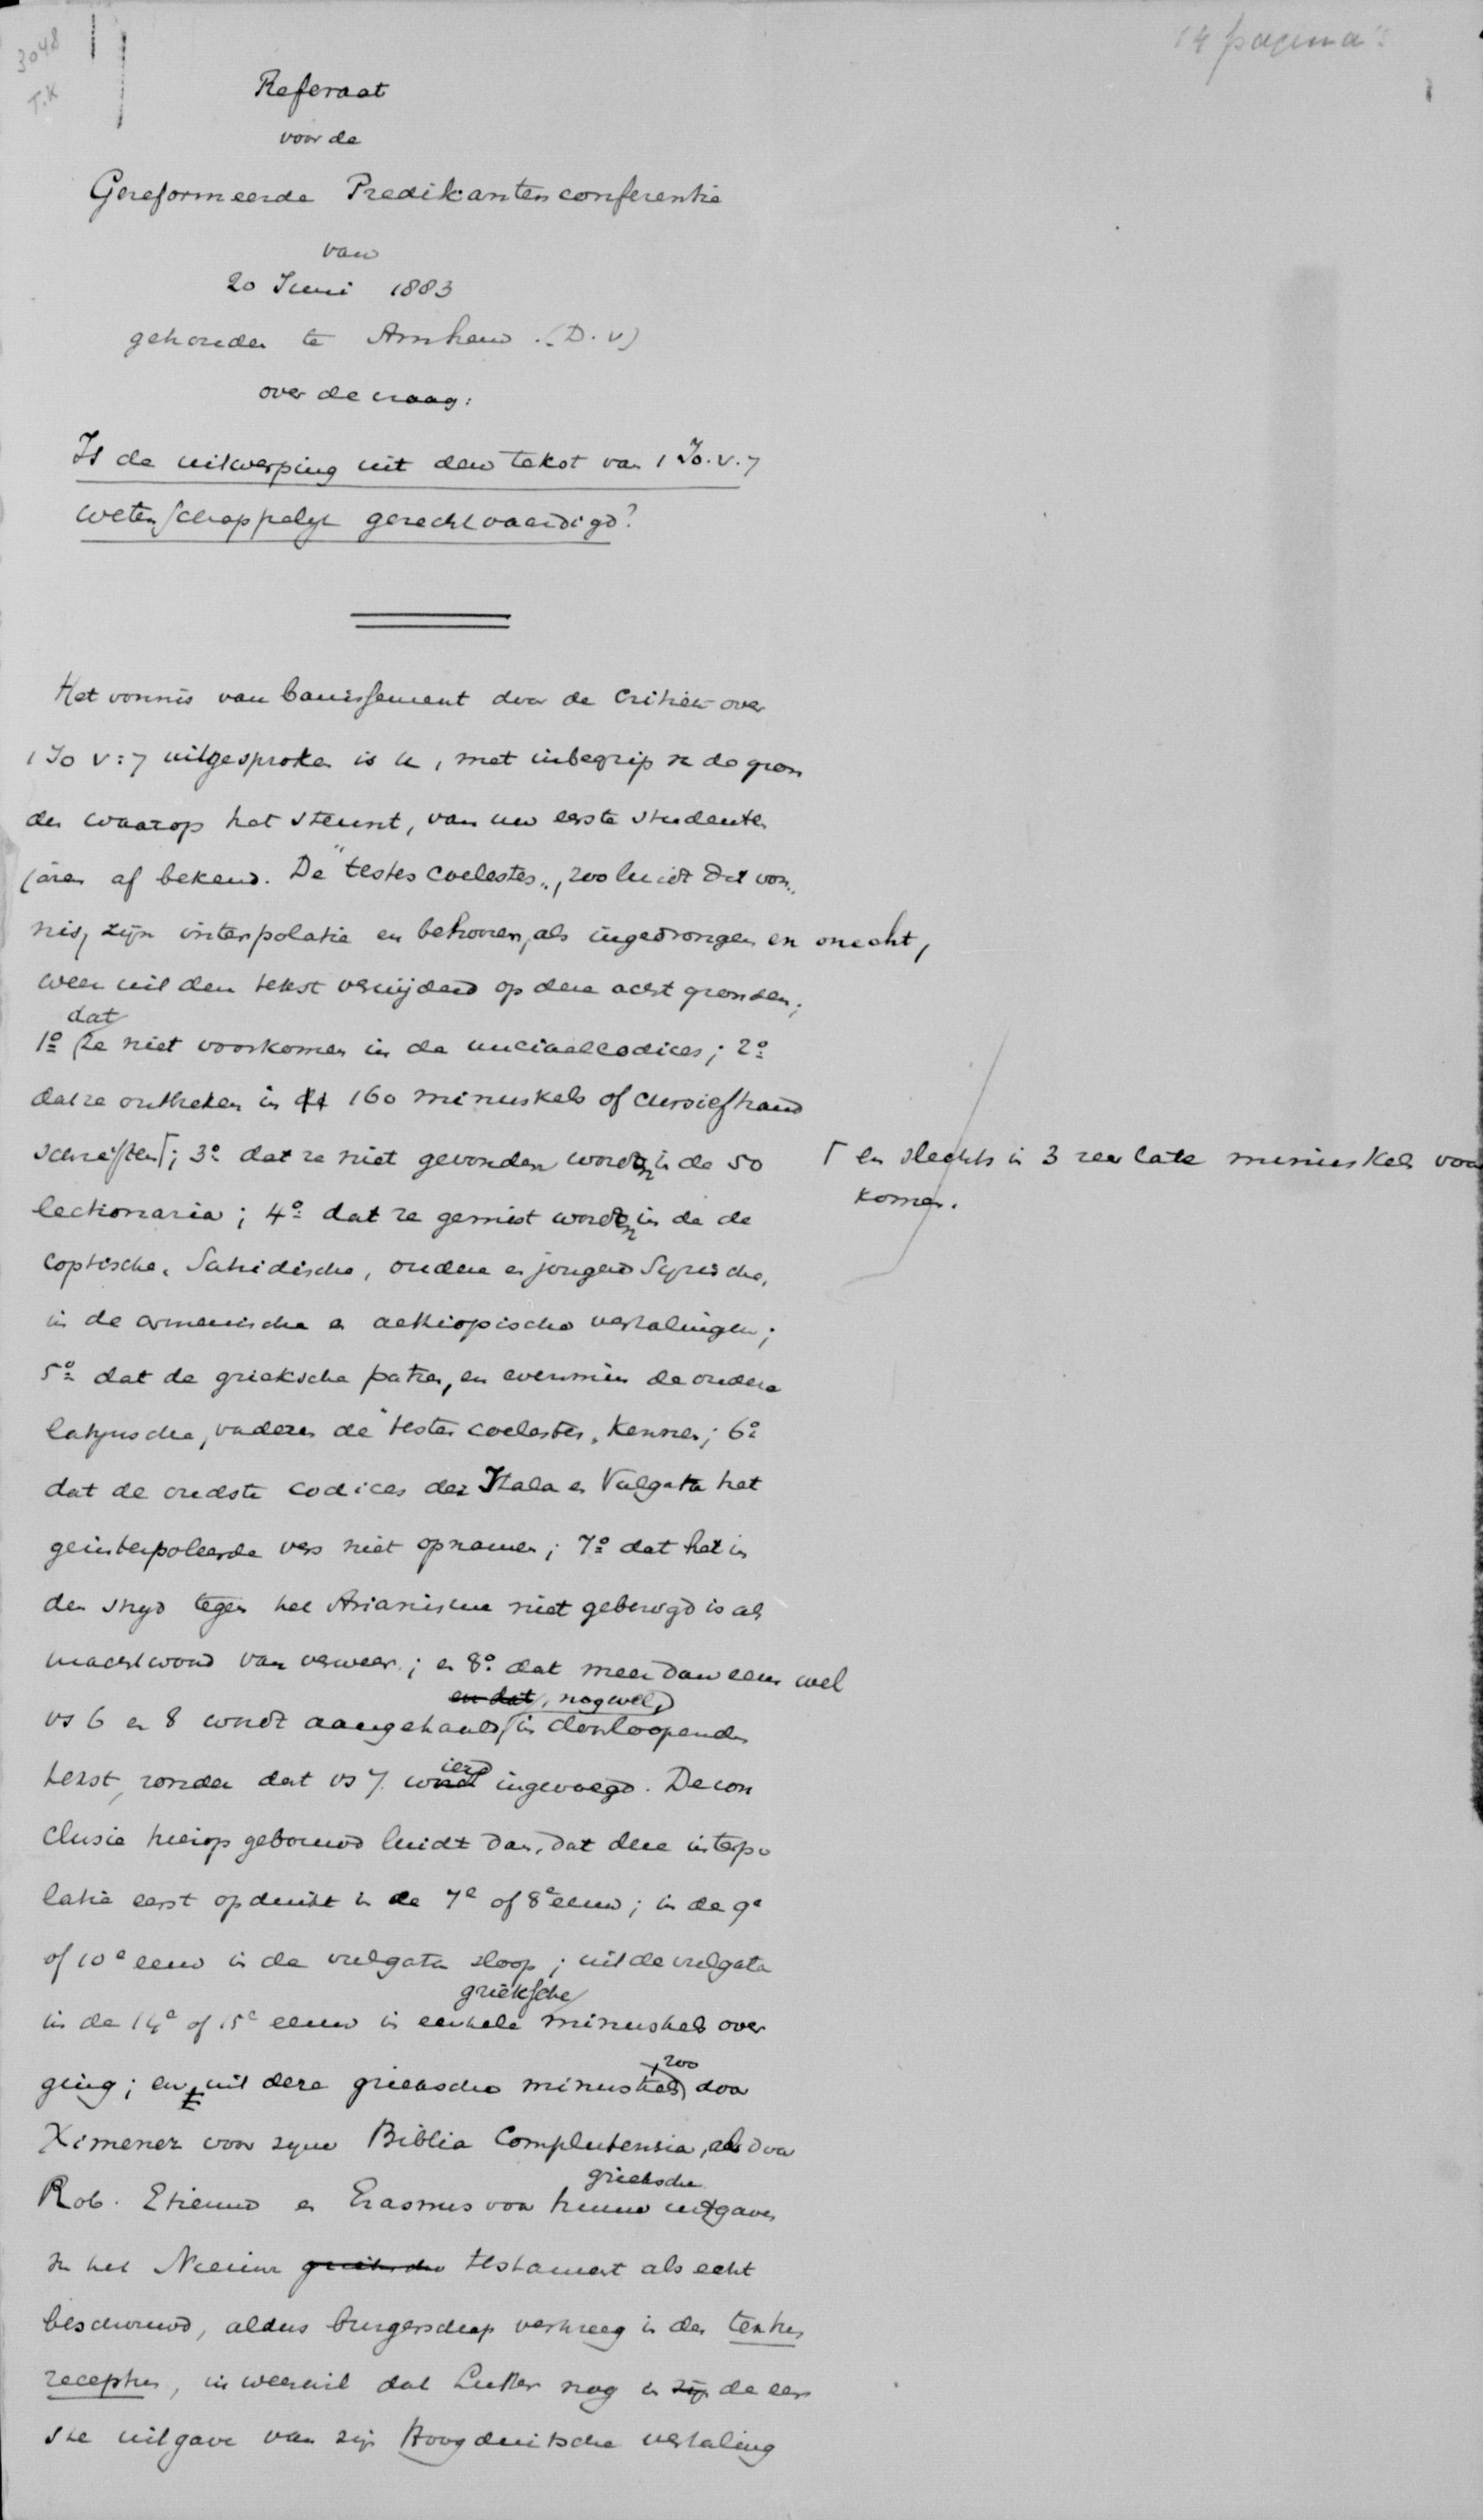 3048
T.K
14 pagina's
Referaat
voor de
Gereformeerde Predikantenconferentie
van
20 Juni 1883
gehouden te Arnhem (D.V)
over de vraag:
Is de uitwerping uit den tekst van 1 Jo. v. 7
wetenschappelyk gerechtvaardigd?
Het vonnis van bannissement door de critiek over
1 Jo v:7 uitgesproken is u, met inbegrip v de gron
den waarop het steunt, van uw eerste studenten
jaren af bekend. De "testes coelestes", zoo luidt dat von
nis, zijn interpolatie en behooren, als ingedrongen en onecht,
weer uit den tekst verwijderd op deze acht gronden;
1º dat ze niet voorkomen in de unciaalcodices; 2º
dat ze ontbreken in 160 minuskels of cursiefhand
schriften ⌈; 3º dat ze niet gevonden worden in de 50
⌈ en slechts in 3 zeer late minuskels voor
komen.
lectionaria; 4º dat ze gemist worden in de de
coptische, Sahidische, oudere en jongere Syrische,
in de armenische en aethiopische vertalingen;
5º dat de grieksche patres, en evenmin de oudere
latynsche, vaderen de "testes coelestes" kennen; 6º
dat de oudste codices der Itala en Vulgata het
geinterpoleerde vers niet opnamen; 7º dat het in
den stryd tegen het Arianisme niet gebezigd is als
machtwoord van verweer; en 8º dat meer dan eens wel
en dat, nog wel,
vs 6 en 8 wordt aangehaald in doorloopenden
tekst, zonder dat vs 7. wordt ierd ingevoegd. De con
clusie hierop gebouwd luidt dan, dat deze interpo
latie eerst opduikt in de 7e of 8e eeuw; in de 9e
of 10e eeuw in de vulgata sloop; uit de vulgata
in de 14e of 15e eeuw in enkele grieksche minuskels over
ging; en uit deze grieksche minuskels, zoo door
Ximenez voor zyne Biblia Complutensia, als door
Rob. Etienne en Erasmus voor hunne grieksche uitgaven
v het Nieuwe grieksche testament als echt
beschouwd, aldus burgerschap verkreeg in den textus
receptus, in weerwil dat Luther nog in zijn de eer
ste uitgave van zijn Hoogduitsche vertaling